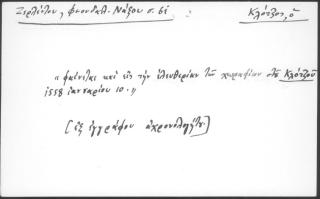 Ζερλέντου, φεουδαλ. Νάξου σ. 61 Κλότζος, ὁ
"φαίνεται καὶ εἰς τὴν ἐλευθερίαν τῶν χωραφίων στοῦ Κλότζου
1558 ἰανουαρίου 10."
[ἐξ ἐγγράφου ἀχρονολογήτου.]